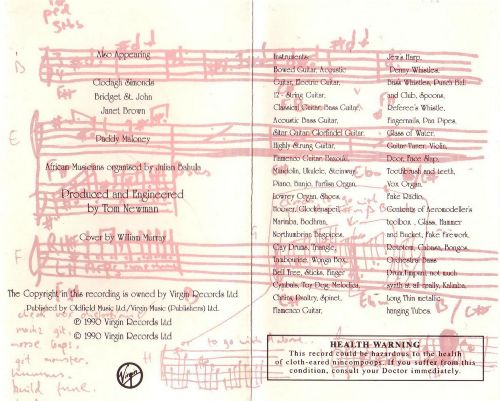 Also Appearing
Clodagh Simonds
Bridget St. John
Janet Brown
Paddy Moloney
African Musicians organised by Julian Bahula
Produced and Engineered
by Tom Newman
Cover by William Murray
The Copyright in this recording is owned by Virgin Records Ltd.
Published by Oldfield Music Ltd./Virgin Music (Publishers) Ltd.
℗ 1990 Virgin Records Ltd
© 1990 Virgin Records Ltd
Virgin
Instruments:
Bowed Guitar, Acoustic
Guitar, Electric Guitar,
12 - String Guitar,
Classical Guitar, Bass Guitar,
Acoustic Bass Guitar,
Sitar Guitar, Glorfindel Guitar,
Highly Strung Guitar,
Flamenco Guitar, Bazouki,
Mandolin, Ukulele, Steinway
Piano, Banjo, Farfisa Organ,
Lowrey Organ, Shoes,
Hoover, Glockenspiel,
Marimba, Bodhran,
Northumbrian Bagpipes,
Clay Drums, Triangle,
Tambourine, Wonga Box,
Bell Tree, Sticks, Finger
Cymbals, Toy Dog, Melodica,
Psaltry, Spinet,
Flamenco Guitar,
Jew's Harp,
Penny Whistles,
Whistles, Punch Ball
and Club, Spoons,
Referee's Whistle,
Fingernails, Pan Pipes,
Glass of Water,
Guitar Tuner, Violin,
Door, Face Slap,
Toothbrush and teeth,
Vox Organ,
Fake Radio,
Contents of Aeromodeller's
Toolbox, Glass, Hammer
and Bucket, Fake Firework,
Rototom, Cabasa, Bongos,
Orchestral Bass
Drum, Timpani, not much
synth at all really, Kalimba,
Long Thin metallic
hanging Tubes.
HEALTH WARNING
This record could be hazardous to the health
of cloth-eared nincompoops. If you suffer from this
condition, consult your Doctor immediately.